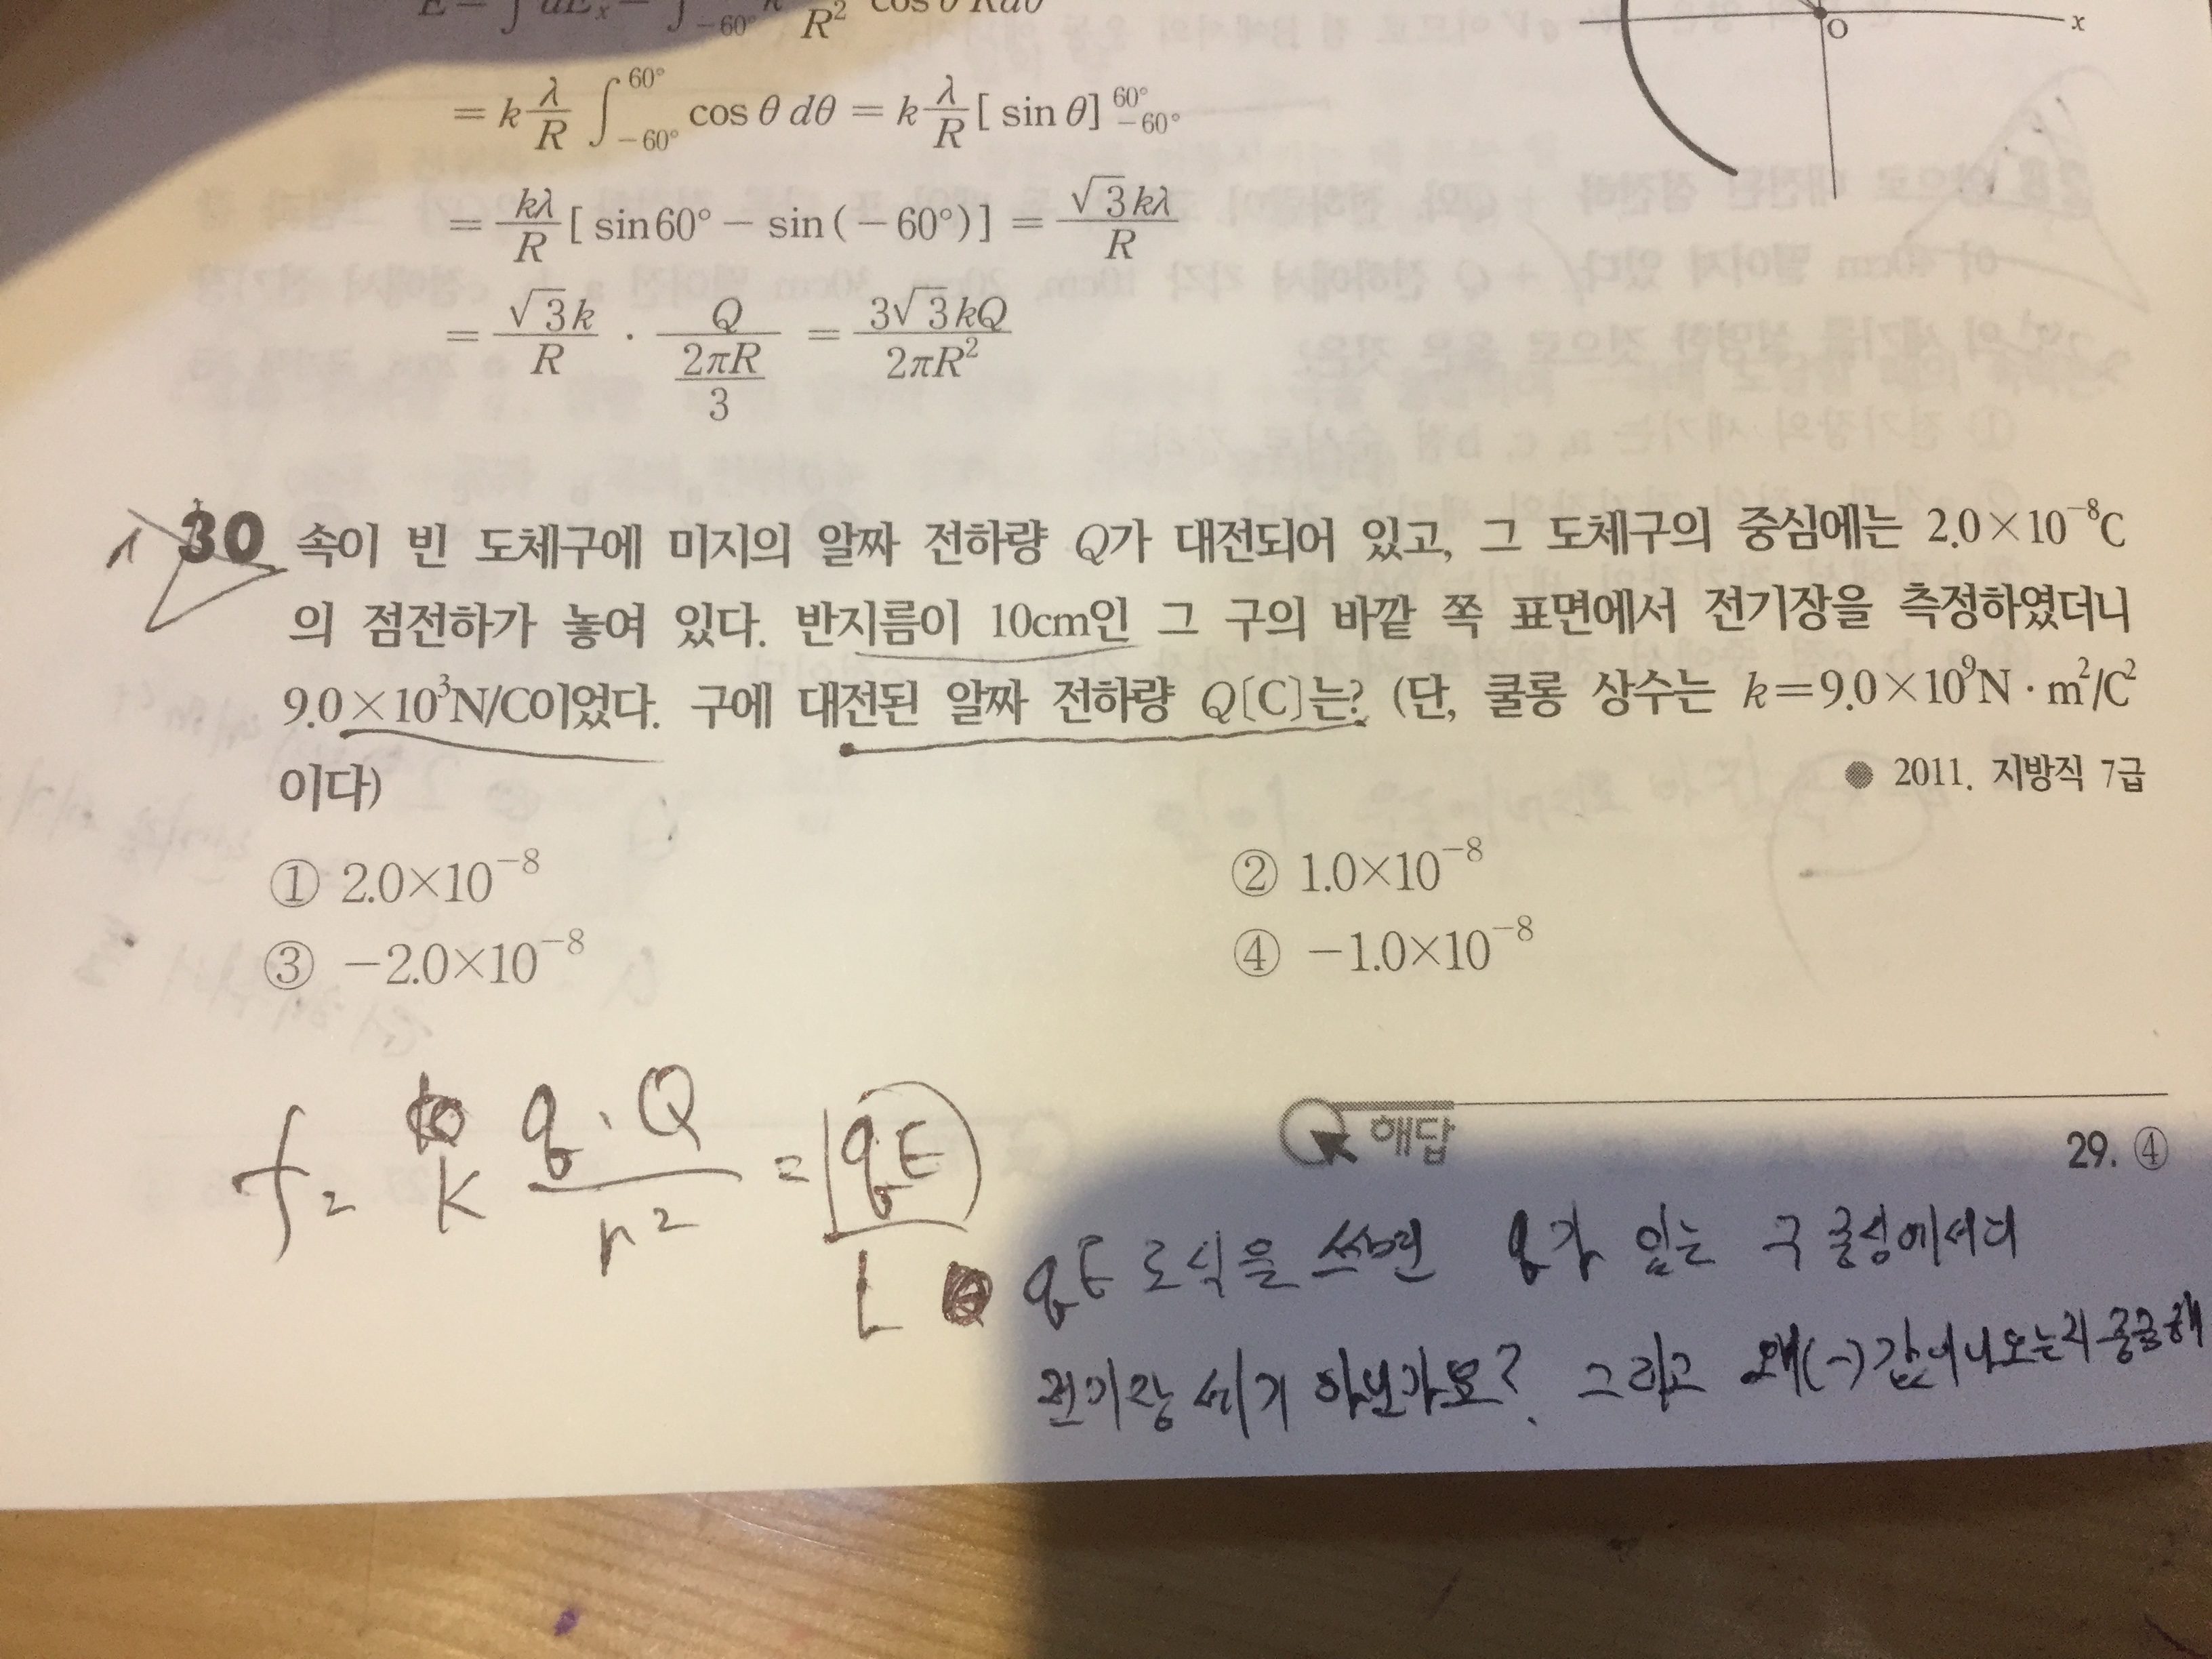 = k λ/R ∫_{-60°}^{60°} cos θ dθ = k λ/R [ sin θ ]_{-60°}^{60°}
= kλ/R [ sin 60° − sin ( − 60°) ] = √3 kλ / R
= √3 k / R · Q / (2πR / 3) = 3√3 kQ / 2πR²
O
x
30 속이 빈 도체구에 미지의 알짜 전하량 Q가 대전되어 있고, 그 도체구의 중심에는 2.0×10⁻⁸C
의 점전하가 놓여 있다. 반지름이 10cm인 그 구의 바깥 쪽 표면에서 전기장을 측정하였더니
9.0×10³N/C이었다. 구에 대전된 알짜 전하량 Q[C]는? (단, 쿨롱 상수는 k=9.0×10⁹N·m²/C²
이다)
● 2011. 지방직 7급
① 2.0×10⁻⁸ ② 1.0×10⁻⁸
③ −2.0×10⁻⁸ ④ −1.0×10⁻⁸
해답 29. ④
f = k q·Q / r² = qE
qE 로 식을 쓰면 q가 있는 구 중심에서의
전기장 세기 아닌가요? 그리고 왜 (-) 값이 나오는지 궁금해